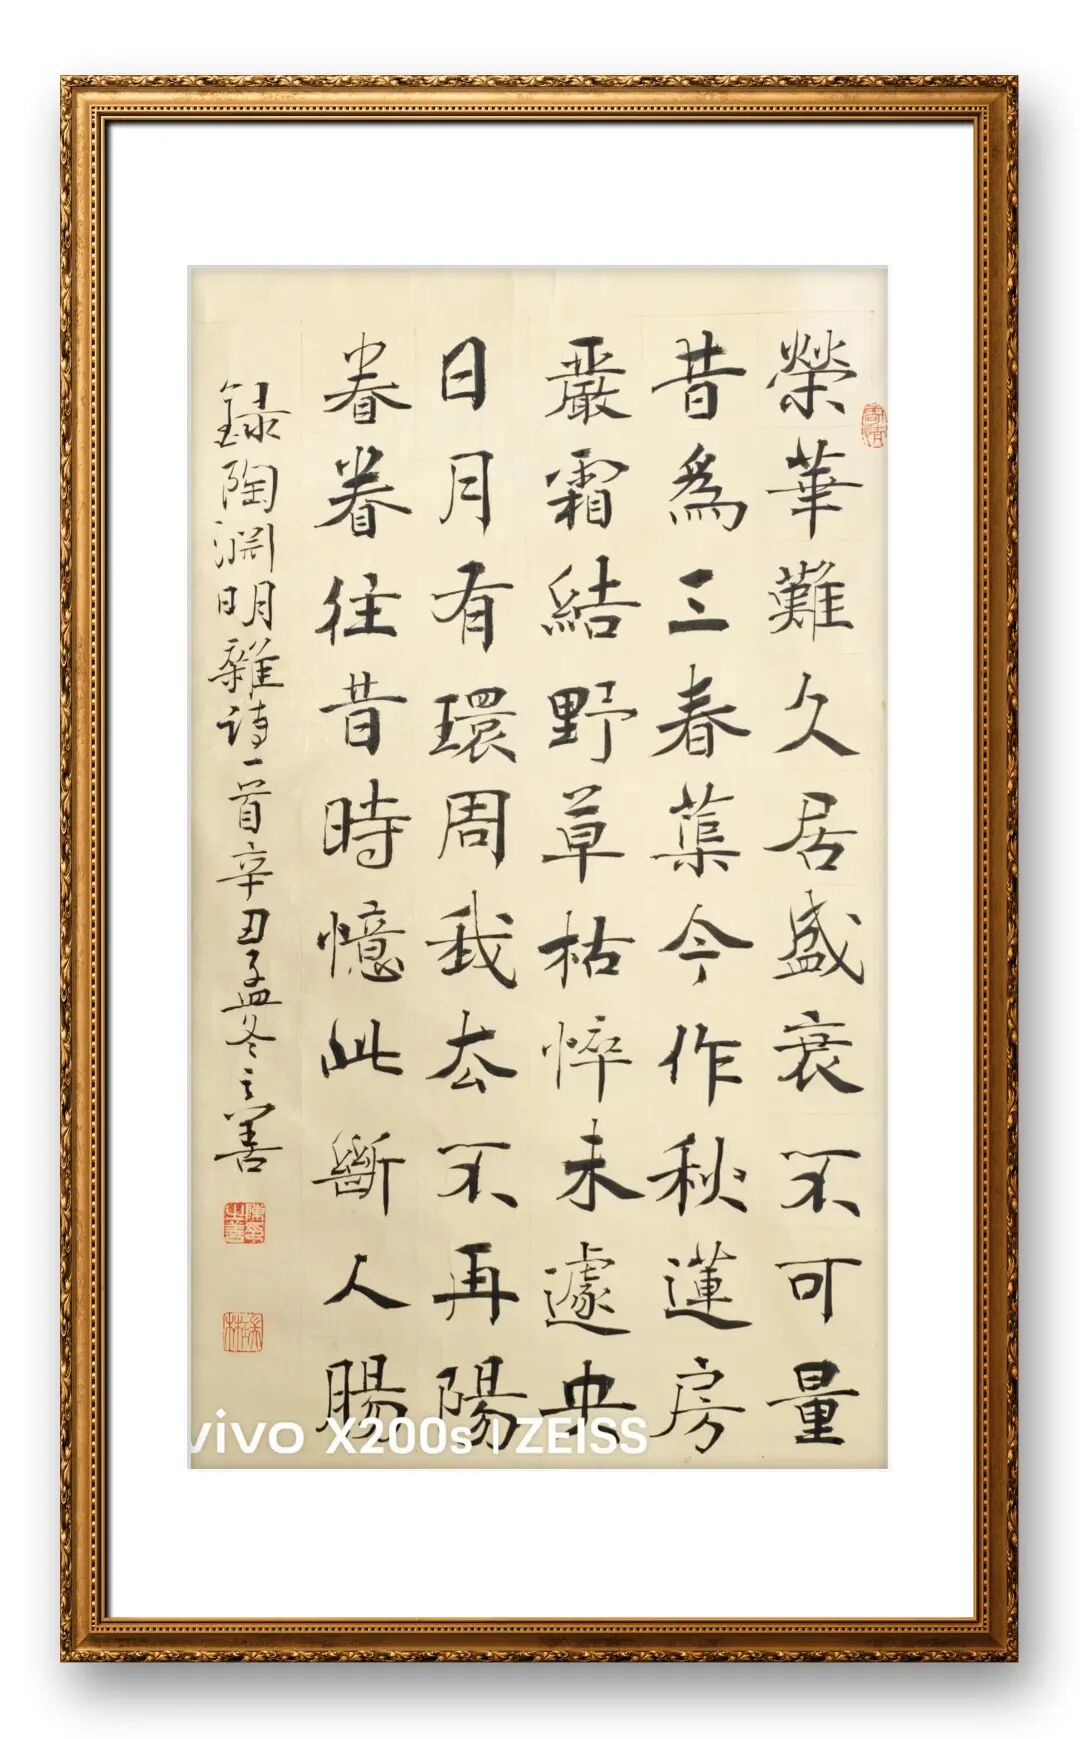 榮華難久居盛衰不可量
昔為三春蕖今作秋蓮房
嚴霜結野草枯悴未遽央
日月有環周我去不再陽
眷眷往昔時憶此斷人腸
録陶淵明雜詩一首辛丑孟冬之善
vivo X200s | ZEISS